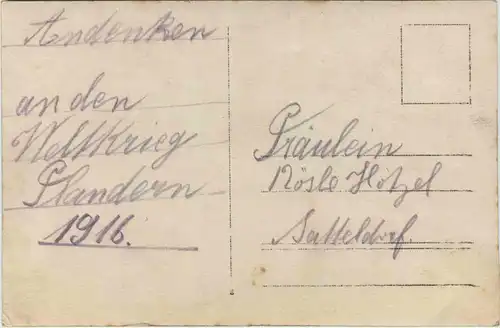 Andenken
an den
Weltkrieg
Flandern
1916.
Fräulein
Rösle Hötzel
Satteldorf.